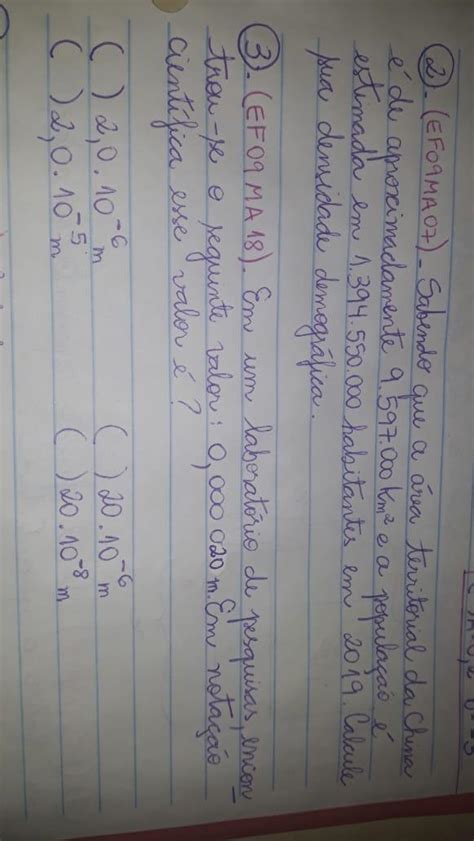 2. (EF09MA07) - Sabendo que a área territorial da China
é de aproximadamente 9.597.000 Km² e a população é
estimada em 1.394.550.000 habitantes em 2019. Calcule
sua densidade demográfica.
3. (EF09MA18). Em um laboratório de pesquisas, encon-
trou-se o seguinte valor: 0,000 020 m. Em notação
científica esse valor é?
( ) 2,0.10⁻⁶ m ( ) 20.10⁻⁶ m
( ) 2,0.10⁻⁵ m ( ) 20.10⁻⁸ m